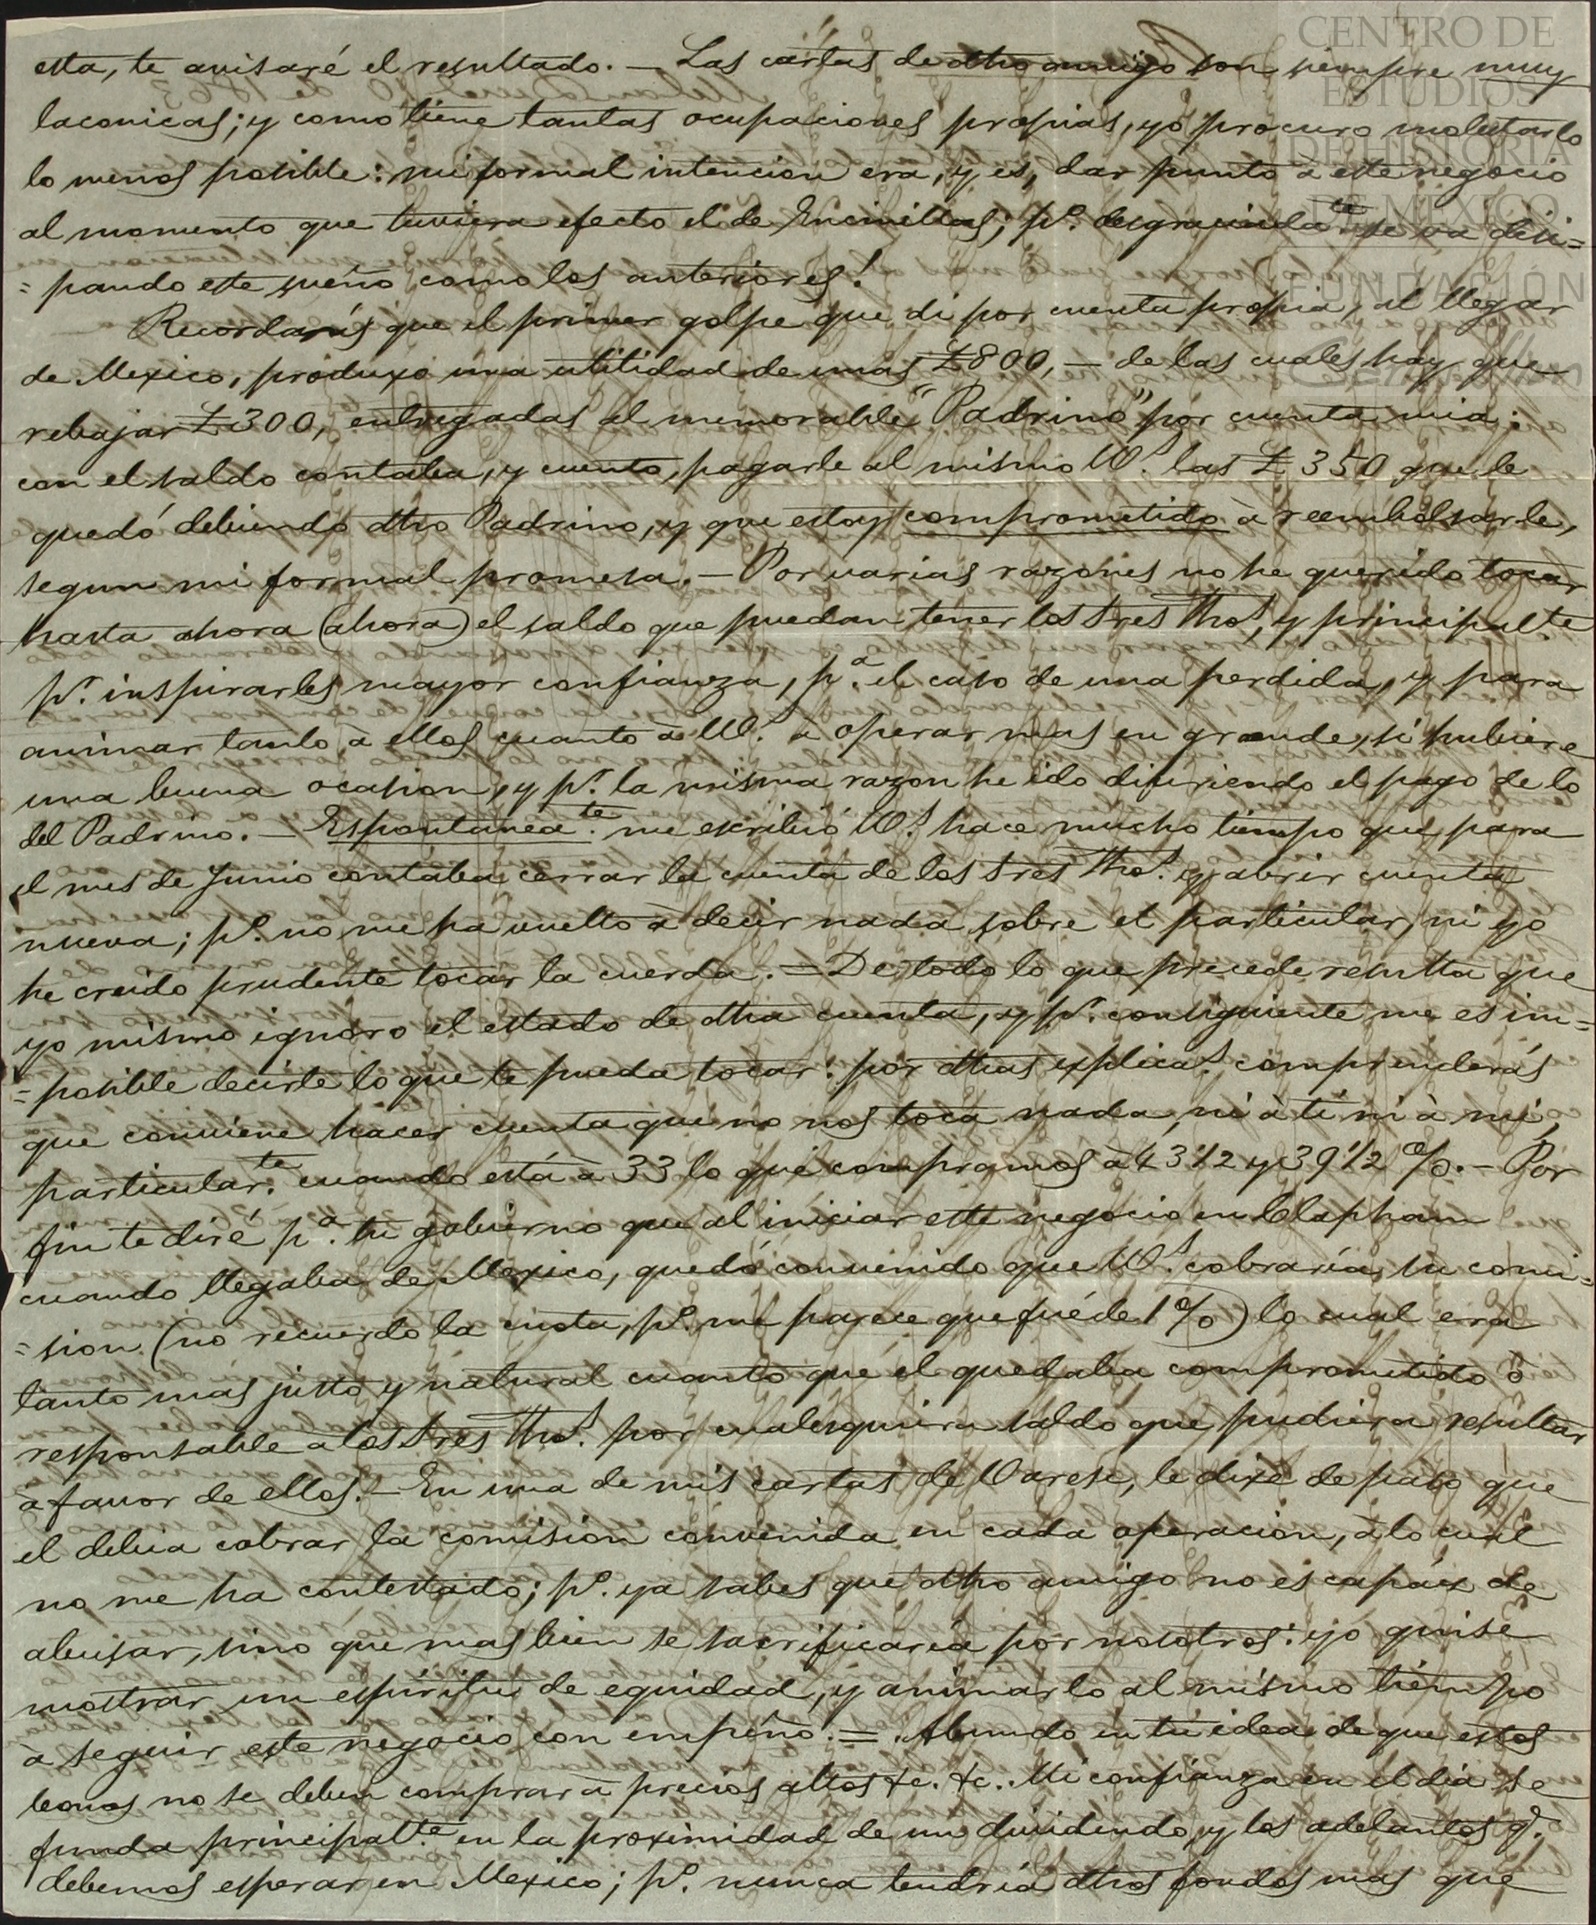 esta, te avisaré el resultado. — Las cartas de dho amigo son siempre muy
laconicas; y como tiene tantas ocupaciones propias, yo procuro molestarlo
lo menos posible: mi formal intencion era, y es, dar punto à este negocio
al momento que tuviera efecto el de Encinillas; pº. desgraciadaᵗᵉ se va disi=
=pando este sueño como los anteriores!
Recordarás que el primer golpe que di por cuenta propia, al llegar
de Mexico, produxo una utilidad de unas £800, — de las cuales hay que
rebajar £300, entregadas al memorable "Padrino" por cuenta mia:
con el saldo contaba, y cuento, pagarle al mismo Wˢ. las £350 que le
quedó debiendo dho Padrino, y que estoy comprometido à reembolsarle,
segun mi formal promesa. — Por varias razones no he querido tocar
hasta ahora (ahora) el saldo que puedan tener los tres Thoˢ, y principalᵗᵉ
pʳ. inspirarles mayor confianza, pª. el caso de una perdida, y para
animar tanto à ellos cuanto à Wˢ. à operar mas en grande, si hubiere
una buena ocasion, y pʳ. la misma razon he ido difiriendo el pago de lo
del Padrino. — Espontaneaᵗᵉ. me escribió Wˢ. hace mucho tiempo que para
el mes de Junio contaba cerrar la cuenta de los tres Thoˢ. y abrir cuenta
nueva; pº. no me ha vuelto à decir nada sobre el particular, ni yo
he creido prudente tocar la cuerda. = De todo lo que precede resulta que
yo mismo ignoro el estado de dha cuenta, y pʳ. consiguiente me es im=
=posible decirte lo que te pueda tocar: por dhas explicaˢ. comprenderás
que conviene hacer cuenta que no nos toca nada, ni à ti ni à mi,
particularᵗᵉ. cuando está à 33 lo que compramos à 43 1/2 y 39 1/2 %. — Por
fin te diré pª. tu gobierno que al iniciar este negocio en Clapham
cuando llegaba de Mexico, quedó convenido que Wˢ. cobraría su comi=
=sion (no recuerdo la cuota, pº. me parece que fué de 1 %) lo cual era
tanto mas justo y natural cuanto que él quedaba comprometido ò
responsable a los tres Thoˢ. por cualesquiera saldo que pudiera resultar
à favor de ellos. — En una de mis cartas de Varese, le dixe de paso que
el debia cobrar la comision convenida en cada operacion, à lo cual
no me ha contestado; pº. ya sabes que dho amigo no es capáz de
abusar, sino que mas bien se sacrificaría por nosotros: yo quise
mostrar un espíritu de equidad, y animarlo al mismo tiempo
à seguir este negocio con empeño. = Abundo en tu idea de que estos
bonos no se deben comprar à precios altos &c. &c. Mi confianza en el dia se
funda principalᵗᵉ en la proximidad de un dividendo, y los adelantos q.ᵉ
debemos esperar en Mexico; pº. nunca tendría dhos fondos mas que
CENTRO DE
ESTUDIOS
DE HISTORIA
DE MEXICO
FUNDACIÓN
Carlos Slim